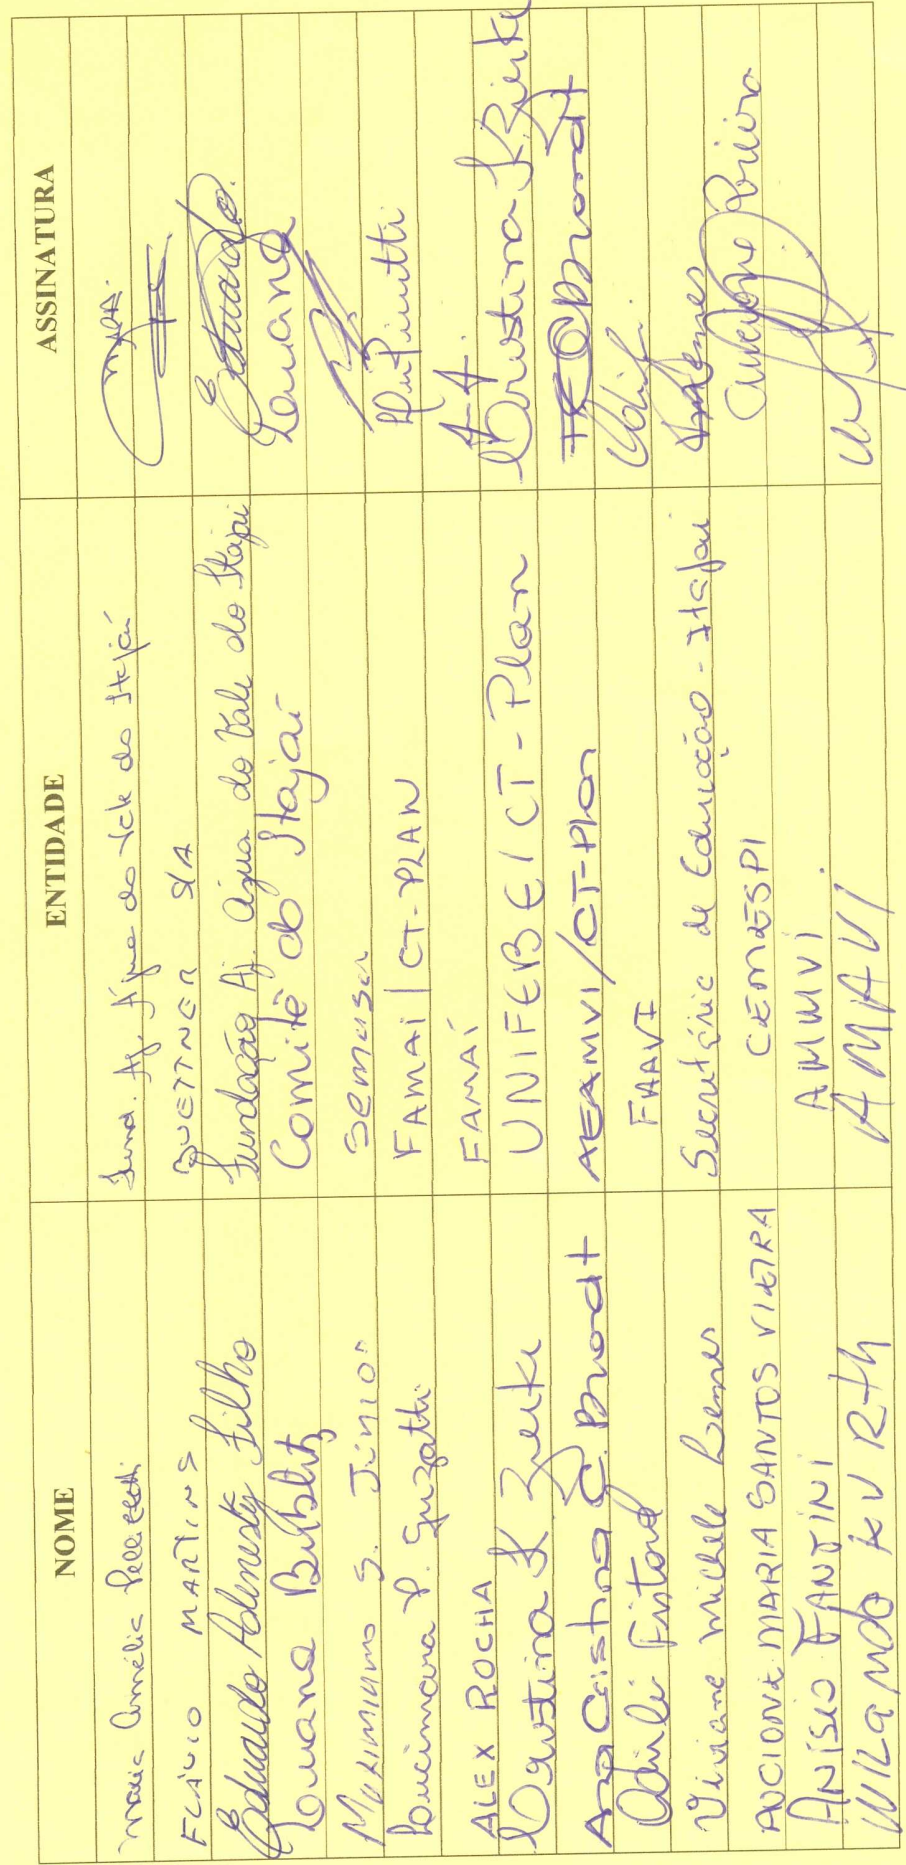 NOME ENTIDADE ASSINATURA
Maria Amélia Pellizzetti Fund. Ag. Água do Vale do Itajaí
FLÁVIO MARTINS BUETTNER S/A
Eduardo Adenesky Filho Fundação Aj. Água do Vale do Itajaí Eduardo.
Luana Bublitz Comitê do Itajaí Luana
Maximiano S. Júnior Semasa
Lucimara P. Guzatti FAMAI / CT-PLAN
ALEX ROCHA FAMAÍ
Cristina K Zierke UNIFEBE / CT-Plan Cristina K. Zierke
Ana Cristina C. Brandt AEAMVI/CT-Plan Brandt
Odirlei FAAVI
Viviane Michele Lemes Secretária de Educação - Itajaí Lemes
AUCIONE MARIA SANTOS VIEIRA CEMESPI Aucione Vieira
ANÍSIO FANTINI AMMVI.
WILANDO KURTH AMAVI